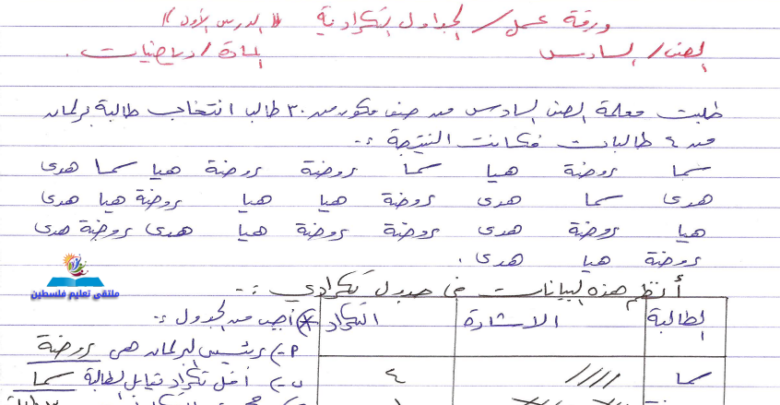 ورقة عمل / الجداول التكرارية (( الدرس الأول ))
الصف / السادس المادة / رياضيات .
طلبت معلمة الصف السادس من صف مكون من ٣٠ طالبا انتخاب طالبة برلمان
من ٤ طالبات فكانت النتيجة :-
سما روضة هيا سما روضة روضة هيا سما هدى
هدى سما هدى روضة هيا هيا روضة هيا هدى
هيا روضة هدى روضة روضة هيا هدى روضة هدى
روضة هيا هدى .
أنظم هذه البيانات في جدول تكراري :-
الطالبة الاشارة التكرار * أجب من الجدول :-
م-) رئيس البرلمان هي روضة
سما //// ٤ ب-) أقل تكرار تقابل الطالبة سما
ملتقى تعليم فلسطين